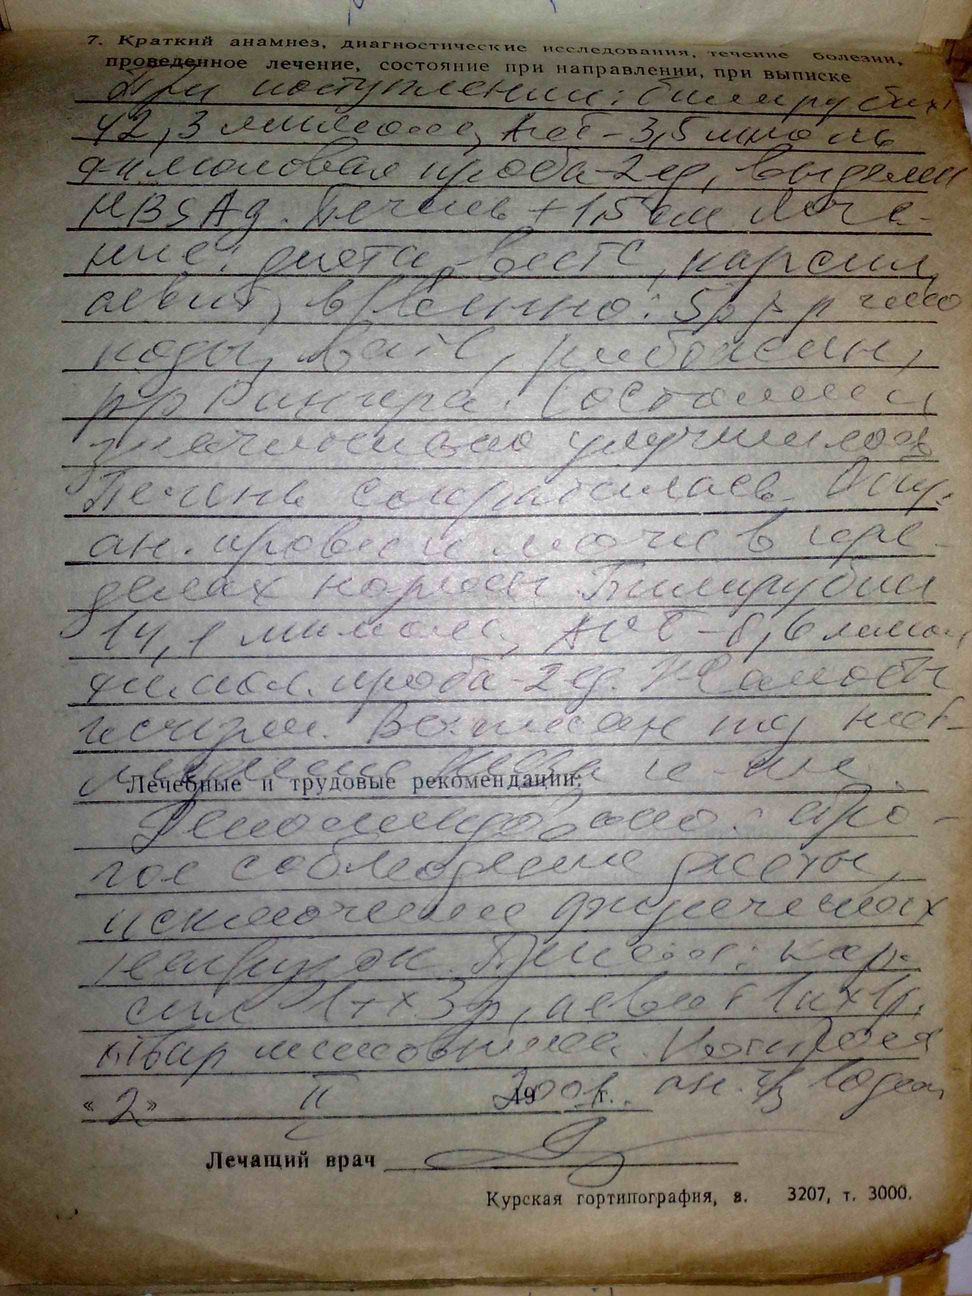 7. Краткий анамнез, диагностические исследования, течение болезни,
проведенное лечение, состояние при направлении, при выписке
При поступлении: билирубин
42,3 ммколь, АлТ-3,5 ммоль
тимоловая проба-2 ед, выделен
HBSAg. Печень +1,5 см. Лече-
ние: диета, карсил,
аевит, в/венно: 5% р-р глю
козы, вит С, рибоксин,
р-р Рингера. Состояние
значительно улучшилось
Печень сократилась. Общ.
ан. крови и мочи в пре-
делах нормы. Билирубин
14,1 АлТ-
тимол. проба-2 ед. Желтость
исчезла. Выписан под наб-
людение
Лечебные и трудовые рекомендации:
Рекомендовано: стро-
гое соблюдение диеты,
исключение физических
нагрузок. кар-
сил 1т х 3р, аевит 1к х 1р,
отвар Контроль
«2» II 2001 г. ан. ч/з
Лечащий врач
Курская гортипография, з. 3207, т. 3000.